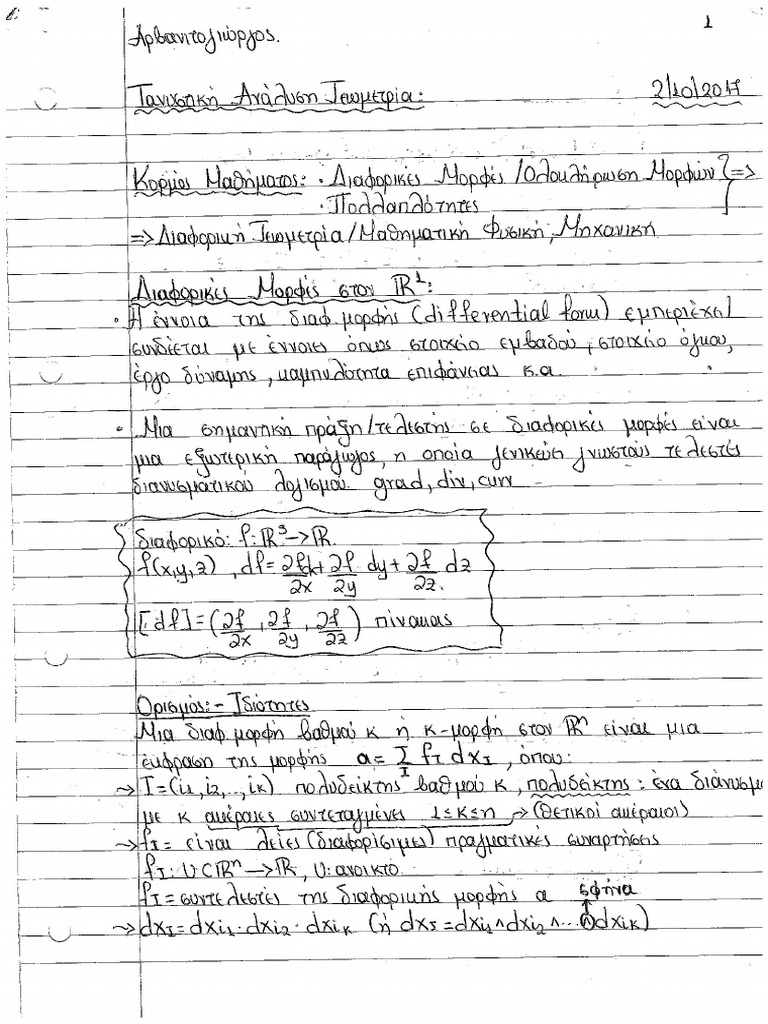 1
Αρβανιτογιώργος.
Τανυστική Ανάλυση Γεωμετρία: 2/10/2017
Κορμός Μαθήματος: · Διαφορικές Μορφές /Ολοκλήρωση Μορφών =>
· Πολλαπλότητες
=> Διαφορική Γεωμετρία/Μαθηματική Φυσική, Μηχανική
Διαφορικές Μορφές στον ℝ¹:
· Η έννοια της διαφ.μορφής (differential form) εμπεριέχει/
συνδέεται με έννοιες όπως στοιχείο εμβαδού, στοιχείο όγκου,
έργο δύναμης, καμπυλότητα επιφάνειας κ.α.
· Μια σημαντική πράξη/τελεστής σε διαφορικές μορφές είναι
μια εξωτερική παράγωγος, η οποία γενικεύει γνωστούς τελεστές
διανυσματικού λογισμού grad, div, curl
διαφορικό: f:ℝ³->ℝ.
f(x,y,z), df=∂f/∂x dx+∂f/∂y dy+∂f/∂z dz
[df]=(∂f/∂x, ∂f/∂y, ∂f/∂z) πίνακας
Ορισμός:-Ιδιότητες
Μια διαφ.μορφή βαθμού κ ή κ-μορφή στον ℝⁿ είναι μια
έκφραση της μορφής a=Σ_I f_I dx_I, όπου:
-> I=(i₁,i₂,..,i_κ) πολυδείκτης βαθμού κ, πολυδείκτης: ένα διάνυσμα
με κ ακέραιες συντεταγμένες 1≤κ≤n -> (θετικοί ακέραιοι)
-> f_I= είναι λείες (διαφορίσιμες) πραγματικές συναρτήσης
f_I: U⊂ℝⁿ->ℝ, U:ανοικτό.
f_I=συντελεστές της διαφορικής μορφής a σφήνα
-> dx_I=dx_i₁·dx_i₂·dx_iκ (ή dx_I=dx_i₁∧dx_i₂∧...∧dx_iκ)